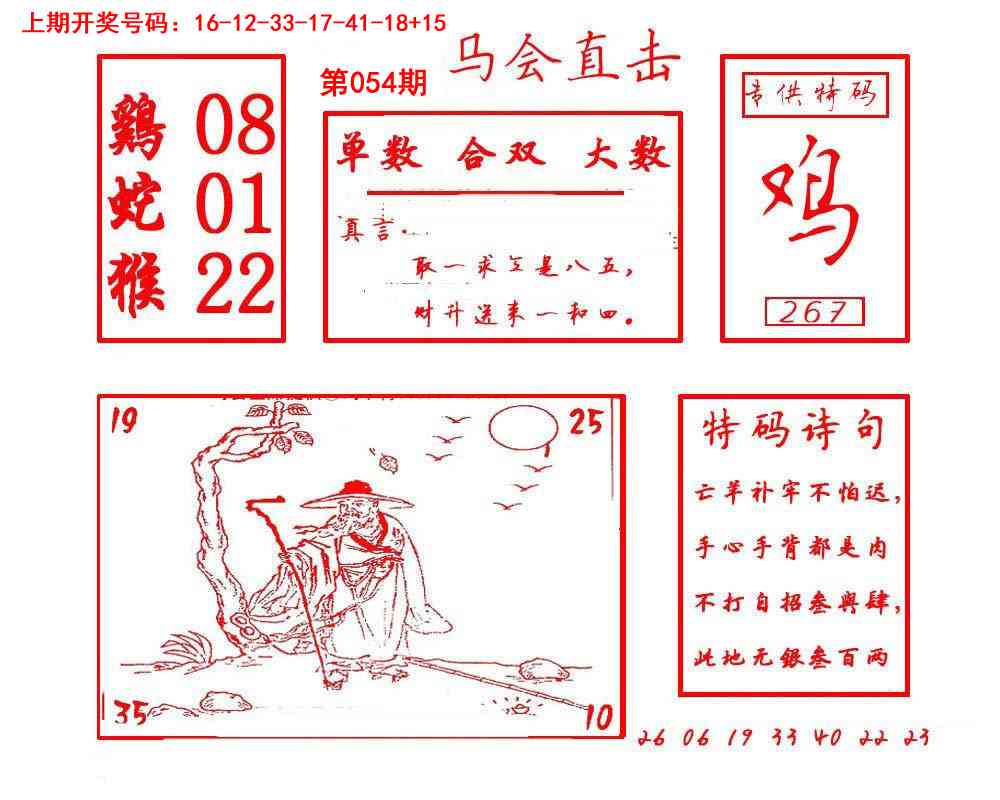 上期开奖号码：16-12-33-17-41-18+15
马会直击
第054期
鷄 08
蛇 01
猴 22
单数 合双 大数
真言.
取一求五是八五，
财升送来一和四。
专供特码
鸡
267
19
25
35
10
特码诗句
亡羊补牢不怕迟，
手心手背都是肉
不打自招叁与肆，
此地无银叁百两
26 06 19 33 40 22 23